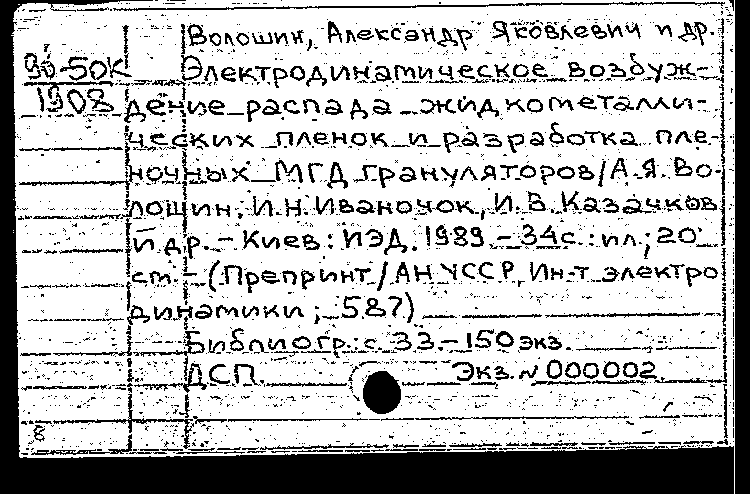 Волошин, Александр Яковлевич и др.
90-50К Электродинамическое возбуж-
1908 дение распада жидкометалли-
ческих пленок и разработка пле-
ночных МГД грануляторов/А.Я.Во-
лошин, И.Н.Иваночок, И.В.Казачков
и др. - Киев: ИЭД, 1989. - 34с.: ил.; 20
см - (Препринт/АН УССР, Ин-т электро
динамики; 587)
Библиогр.: с. 33. - 150 экз.
ДСП. Экз. N 000002.
8